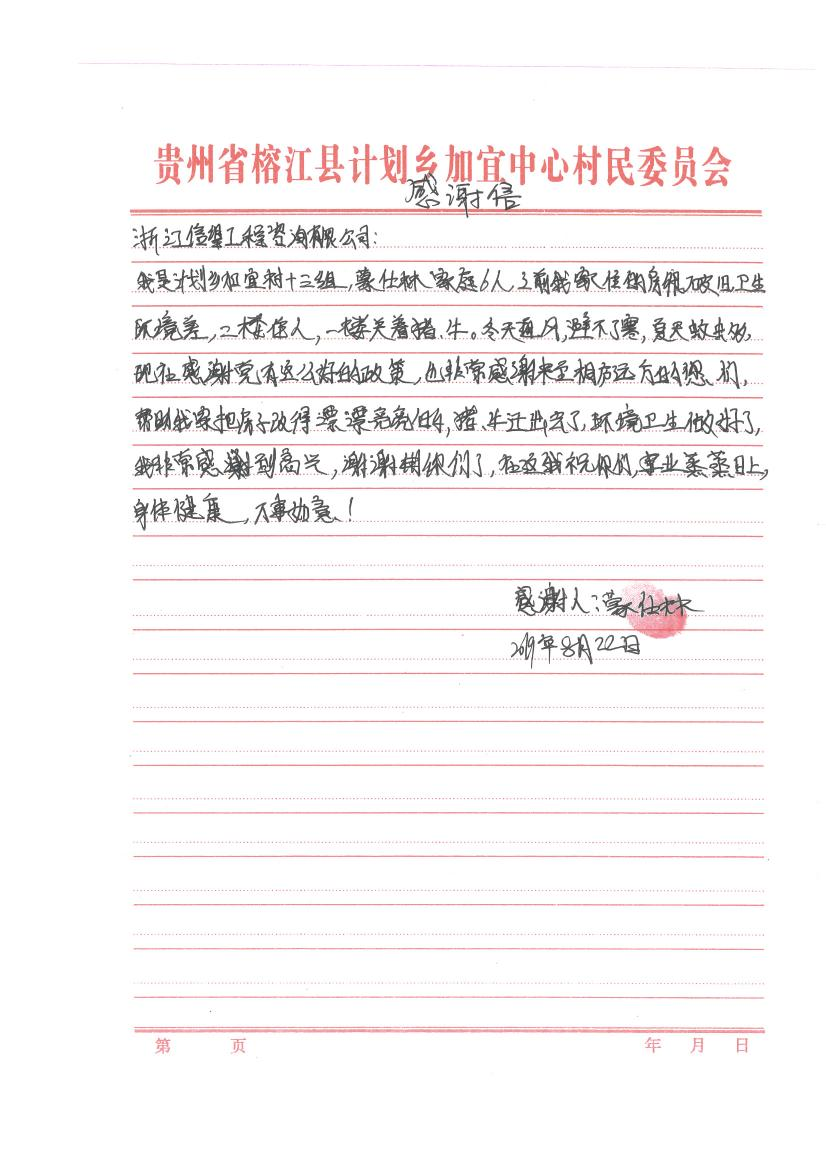 贵州省榕江县计划乡加宜中心村民委员会
感谢信
浙江信望工程咨询有限公司:
我是计划乡加宜村十三组,蒙仕林家庭6人,之前我家住的房很破旧卫生
环境差,二楼住人,一楼关着猪、牛。冬天通风,避不了寒,夏天蚊虫多,
现在感谢党有这么好的政策,也非常感谢来至相方远方的您们,
帮助我家把房子改得漂漂亮亮的,猪、牛迁出完了,环境卫生做好了,
我非常感谢到高兴,谢谢你们了,在这我祝你们,事业蒸蒸日上,
身体健康,万事如意!
感谢人:蒙仕林
2019年8月22日
第 页 年 月 日